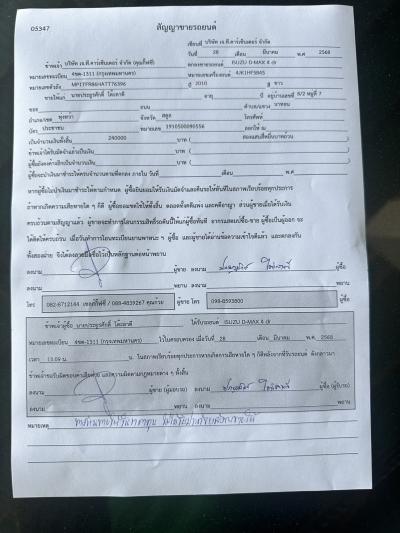 05347
สัญญาขายรถยนต์
เขียนที่ บริษัท เจ.ที.คาร์เซ็นเตอร์ จำกัด
วันที่ 28 เดือน มีนาคม พ.ศ 2568
ข้าพเจ้า บริษัท เจ.ที.คาร์เซ็นเตอร์ จำกัด ตกลงขายรถยนต์ ISUZU D-MAX 4 dr
หมายเลขทะเบียน 4ขค-1311 (กรุงเทพมหานคร) หมายเลขเครื่องยนต์
หมายเลขตัวถัง ปี 2010 สี ขาว
ขายให้แก่ นายประยูรศักดิ์ อายุ ปี อยู่บ้านเลขที่ 8/2 หมู่ที่ 7
ซอย ถนน ตำบล/แขวง นาทอน
อำเภอ/เขต ทุ่งหว้า จังหวัด สตูล โทรศัพท์
บัตร ประชาชน หมายเลข 1910500090556 ออกให้ ณ
เป็นจำนวนเงินทั้งสิ้น 240000 บาท ( สองแสนสี่หมื่นบาทถ้วน )
ข้าพเจ้าได้รับมัดจำแล้วเป็นเงิน บาท ( )
ผู้ซื้อยังคงค้างอีกเป็นจำนวนเงิน บาท ( )
ผู้ซื้อจะนำเงินมาชำระให้ครบจำนวนตามที่ตกลง ภายใน วันที่ เดือน พ.ศ.
หากผู้ซื้อไม่นำเงินมาชำระให้ตามกำหนด ผู้ซื้อยินยอมให้ริบเงินมัดจำและคืนรถให้ทันทีในสภาพเรียบร้อยทุกประการ
ถ้าหากเกิดความเสียหายใด ๆ ก็ดี ผู้ซื้อยอมชดใช้ให้ทั้งสิ้น ตลอดทั้งคดีแพ่ง และคดีอาญา ส่วนผู้ขายเมื่อได้รับเงิน
ครบถ้วนตามสัญญาแล้ว ผู้ขายจะทำการโอนกรรมสิทธิ์รถดันนี้ให้แก่ผู้ซื้อทันที จากกรมสรรพ ผู้ซื้อเป็นผู้ออก จะ
ได้ติดให้ครบถ้วน เมื่อวันทำการโอนทะเบียนยานพาหนะ ฯ ผู้ซื้อ และผู้ขายได้อ่านข้อความเข้าใจดีแล้ว และตกลงกัน
ทั้งสองฝ่าย จึงได้ลงลายมือชื่อไว้เป็นหลักฐานต่อหน้าพยาน
ลงนาม ผู้ขาย ลงนาม ผู้ซื้อ
ลงนาม พยาน ลงนาม พยาน
โทร 082-8712144 เซลล์กิ๊ฟซี่ / 088-4839267 คุณก้วย ผู้ขาย โทร 098-0593800 ผู้ซื้อ
ข้าพเจ้าผู้ซื้อ นายประยูรศักดิ์ ได้รับรถยนต์ ISUZU D-MAX 4 dr
หมายเลขทะเบียน 4ขค-1311 (กรุงเทพมหานคร) ไว้ในครอบครอง เมื่อวันที่ 28 เดือน มีนาคม พ.ศ. 2568
เวลา 13.09 น. ในสภาพเรียบร้อยทุกประการหากเกิดการเสียหายใด ๆ ก็ดีหลังจากที่รับรถยนต์ ดังกล่าวมา
ข้าพเจ้าขอรับผิดชอบค่าเสียหาย และมีความผิดตามกฎหมายต่าง ๆ ทั้งสิ้น
ลงนาม ผู้ขาย (ผู้มอบรถ) ลงนาม ผู้ซื้อ (ผู้รับรถ)
ลงนาม พยาน ลงนาม พยาน
หมายเหตุ